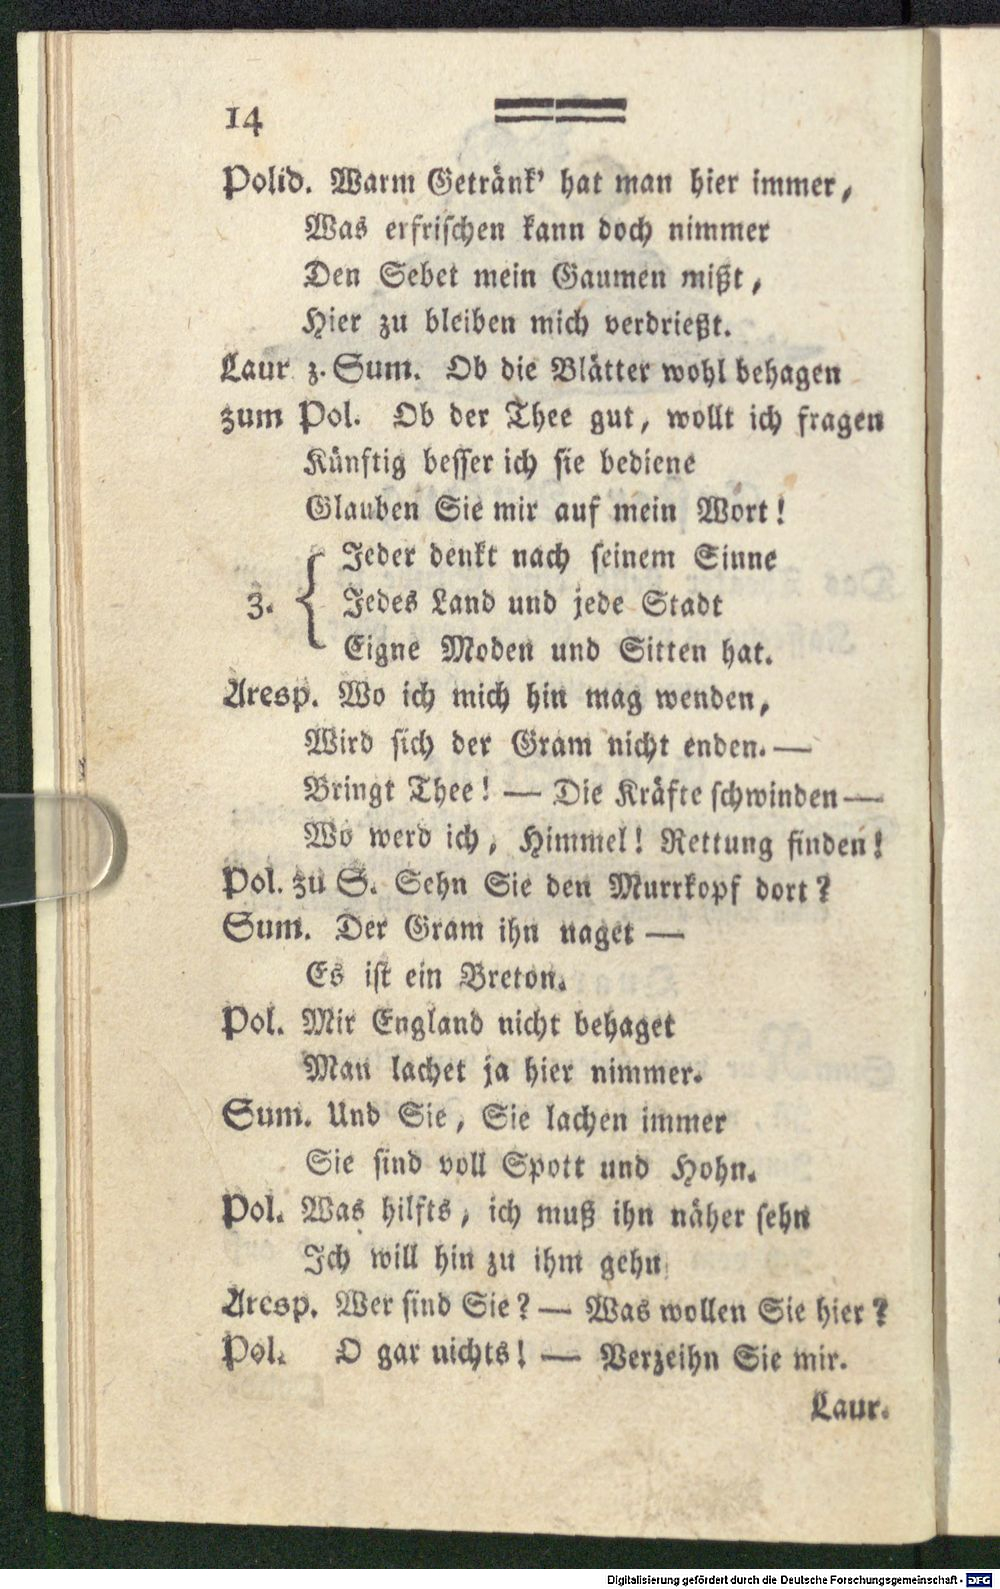 14
Polid. Warm Getränk' hat man hier immer,
Was erfrischen kann doch nimmer
Den Sebet mein Gaumen mißt,
Hier zu bleiben mich verdrießt.
Laur z. Sum. Ob die Blätter wohl behagen
zum Pol. Ob der Thee gut, wollt ich fragen
Künftig besser ich sie bediene
Glauben Sie mir auf mein Wort!
Jeder denkt nach seinem Sinne
3. Jedes Land und jede Stadt
Eigne Moden und Sitten hat.
Aresp. Wo ich mich hin mag wenden,
Wird sich der Gram nicht enden. —
Bringt Thee! — Die Kräfte schwinden —
Wo werd ich, Himmel! Rettung finden!
Pol. zu S. Sehn Sie den Murrkopf dort?
Sum. Der Gram ihn naget —
Es ist ein Breton.
Pol. Mir England nicht behaget
Man lachet ja hier nimmer.
Sum. Und Sie, Sie lachen immer
Sie sind voll Spott und Hohn.
Pol. Was hilfts, ich muß ihn näher sehn
Ich will hin zu ihm gehn
Aresp. Wer sind Sie? — Was wollen Sie hier?
Pol. O gar nichts! — Verzeihn Sie mir.
Laur.
Digitalisierung gefördert durch die Deutsche Forschungsgemeinschaft - DFG